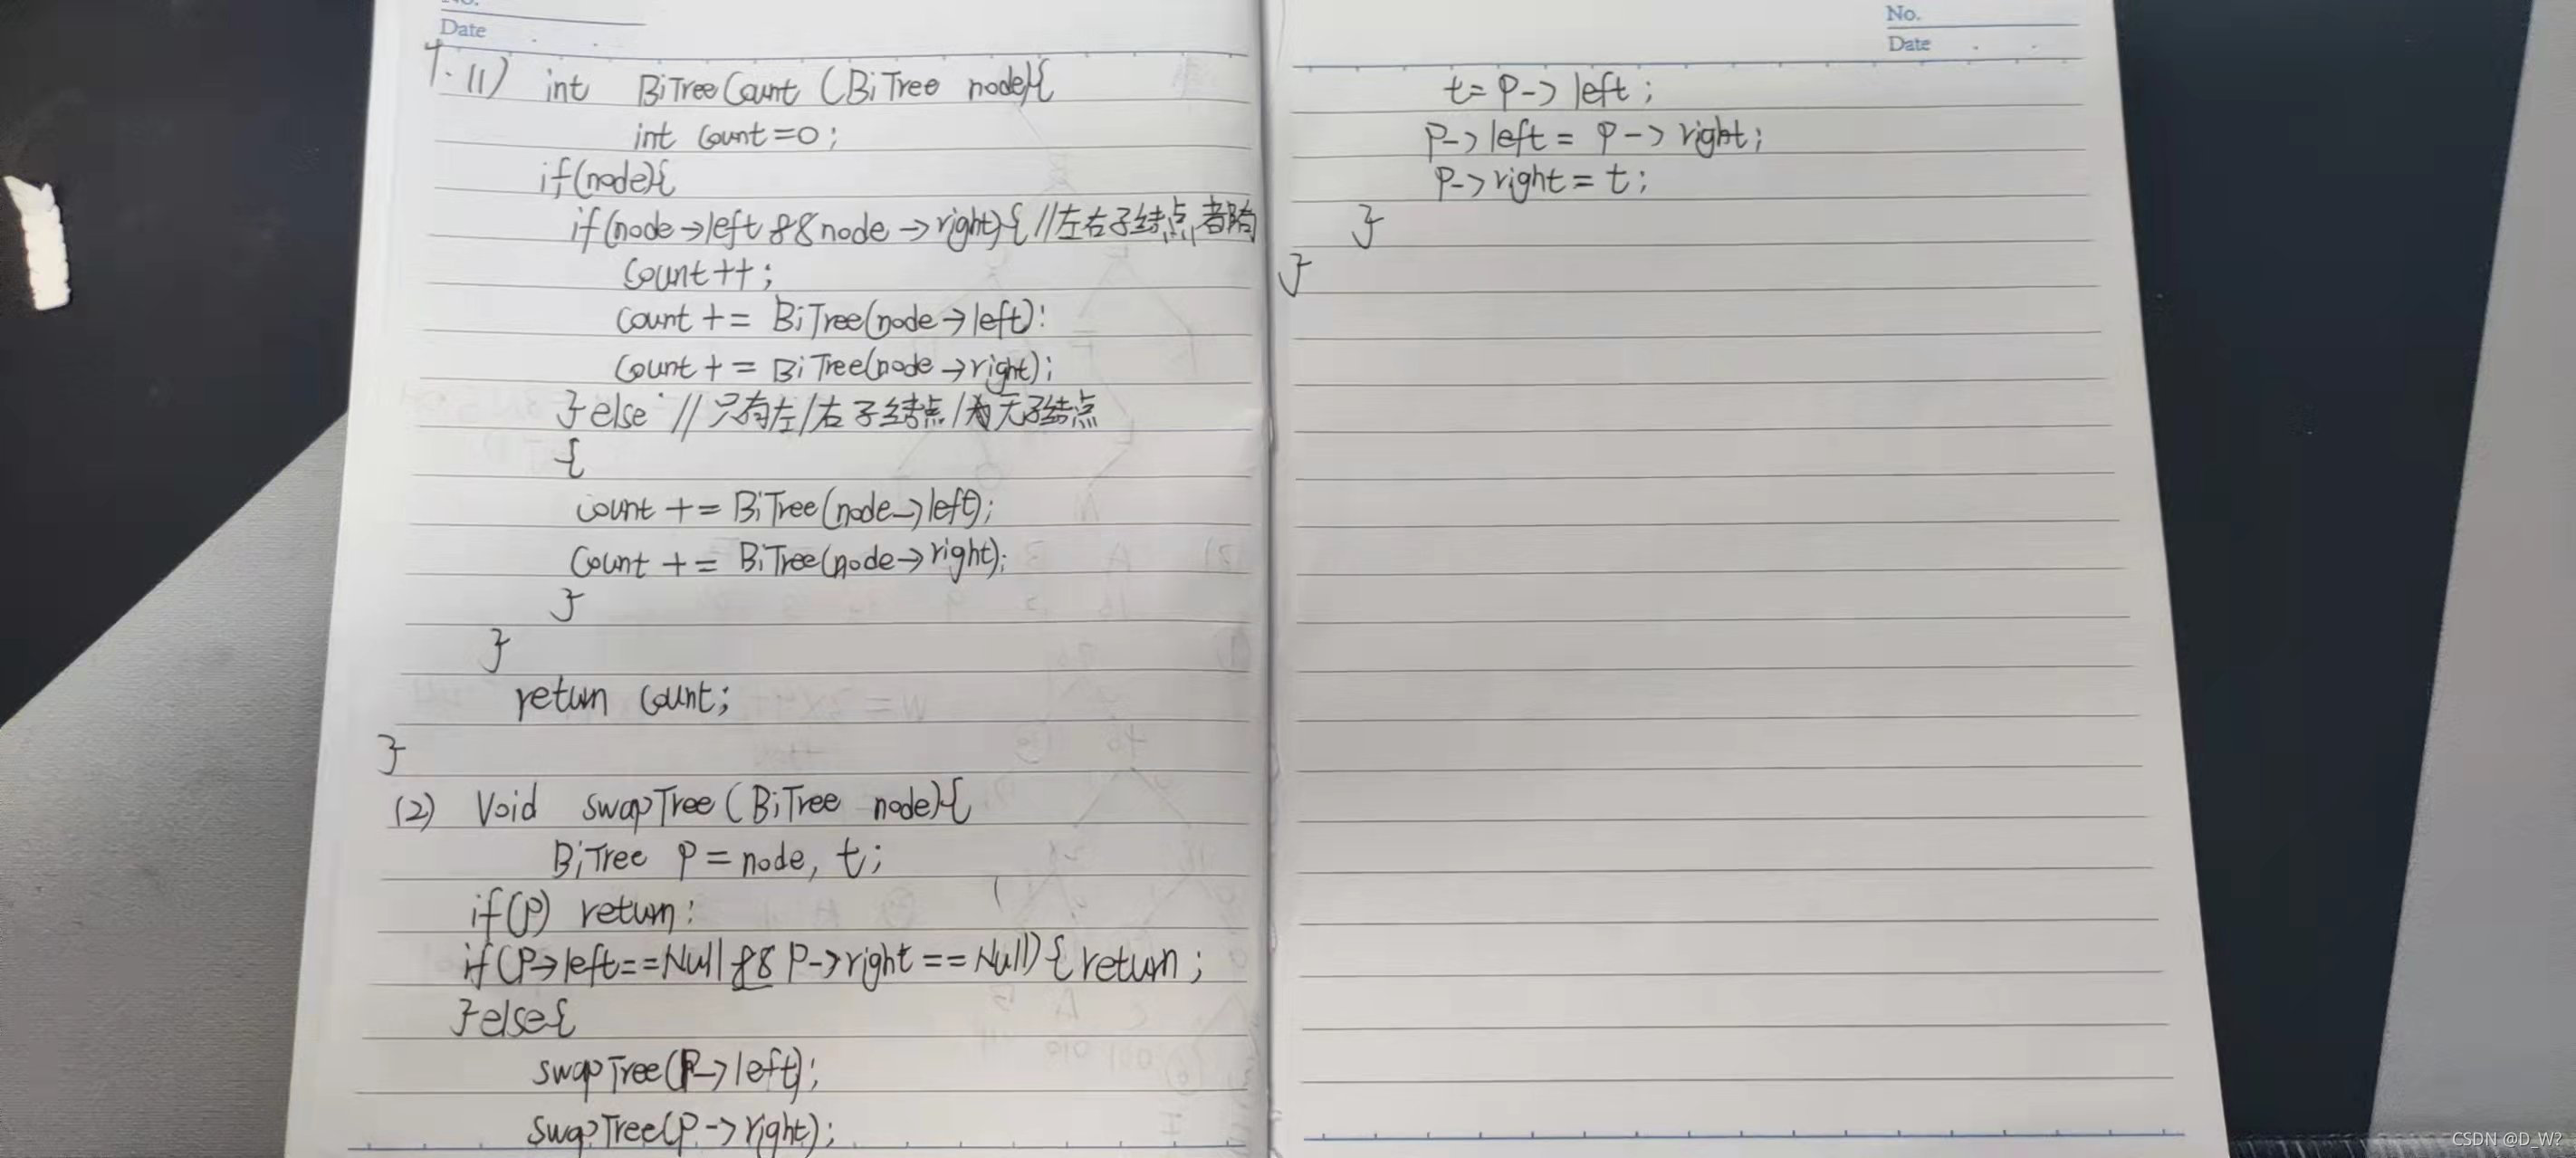 No.
Date
7.(1) int BiTreeCount (BiTree node){
int count=0;
if(node){
if(node->left && node->right){ //左右子结点都有
count++;
count += BiTree(node->left);
count += BiTree(node->right);
}else //只有左/右子结点/为无子结点
{
count += BiTree(node->left);
count += BiTree(node->right);
}
}
return count;
}
(2) Void swapTree(BiTree node){
BiTree p=node, t;
if(p) return;
if(p->left==Null && p->right==Null){return;
}else{
swapTree(p->left);
swapTree(p->right);
No.
Date
t=p->left;
p->left=p->right;
p->right=t;
}
}
CSDN @D_W?